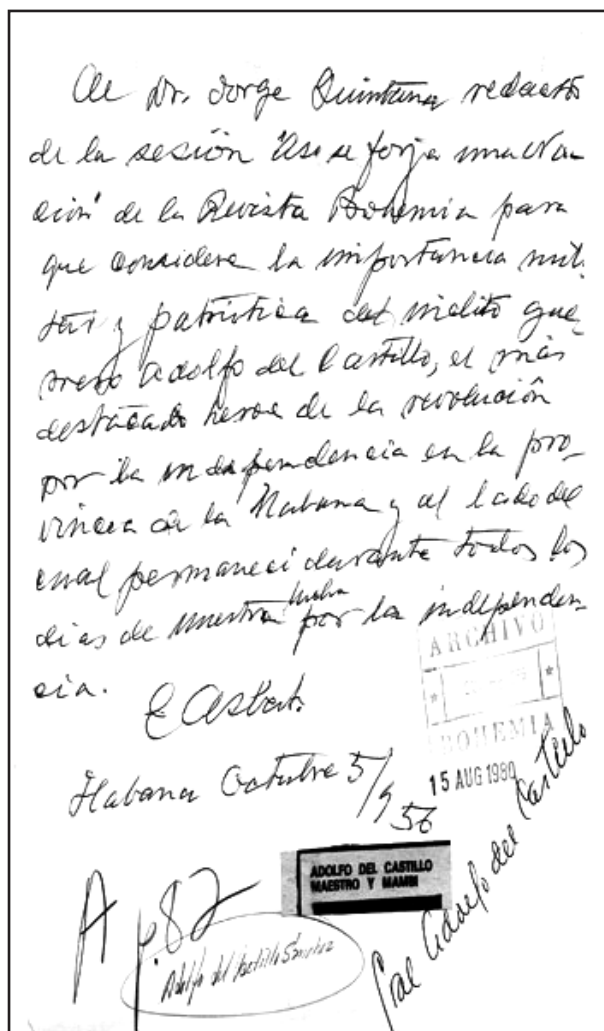 Al Dr. Jorge Quintana redactor
de la sesión "Asi se forja una Na-
ción" de la Revista Bohemia para
que considere la importancia mili-
tar y patriótica del inclito gue-
rrero Adolfo del Castillo, el más
destacado heroe de la revolución
por la independencia en la pro-
vincia de la Habana y al lado del
cual permaneci durante todos los
dias de nuestra lucha por la independen-
cia.
E Asbert.
Habana Octubre 5/956
ARCHIVO
BOHEMIA
15 AUG 1980
ADOLFO DEL CASTILLO
MAESTRO Y MAMBI
A p.82
Adolfo del Castillo Sánchez
Gral Adolfo del Castillo